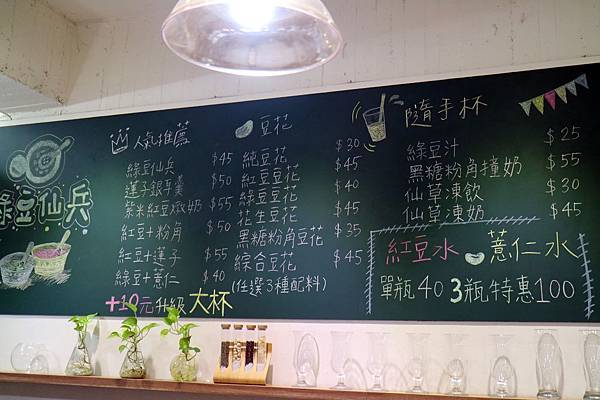 綠豆仙兵
人氣推薦
綠豆仙兵 $45
蓮子銀耳羹 $50
紫米紅豆燉奶 $55
紅豆+粉角 $50
紅豆+蓮子 $55
綠豆+薏仁 $40
+10元升級 大杯
豆花
純豆花 $30
紅豆豆花 $45
綠豆豆花 $40
花生豆花 $45
黑糖粉角豆花 $35
綜合豆花 $45
(任選3種配料)
隨手杯
綠豆汁 $25
黑糖粉角撞奶 $55
仙草凍飲 $30
仙草凍奶 $45
紅豆水 薏仁水
單瓶40 3瓶特惠100